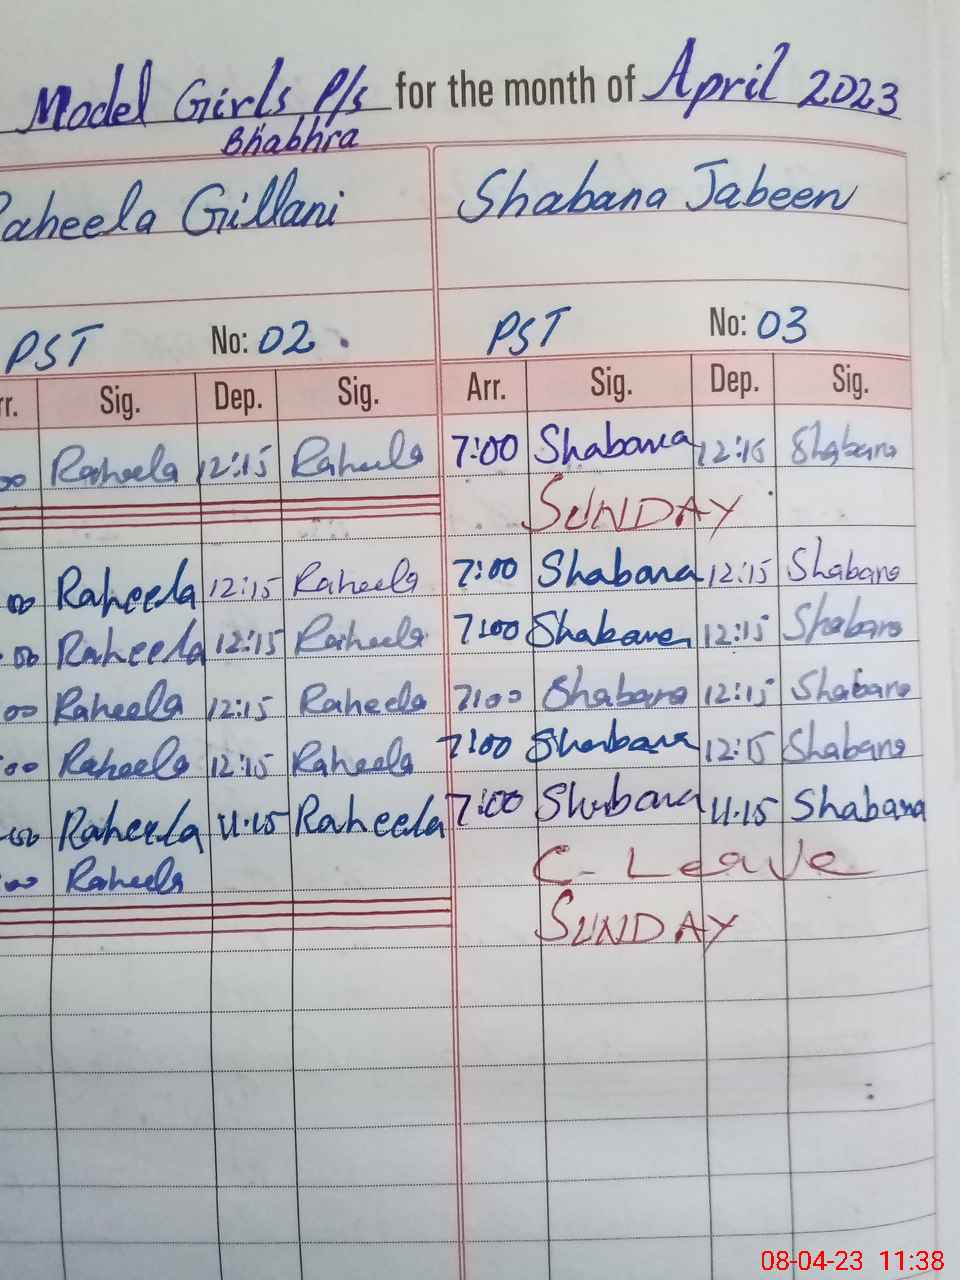 Model Girls P/s for the month of April 2023
Bhabhra
Raheela Gillani Shabana Jabeen
PST No: 02. PST No: 03
rr. Sig. Dep. Sig. Arr. Sig. Dep. Sig.
00 Raheela 12:15 Raheela 7:00 Shabana 12:15 Shabana
SUNDAY
00 Raheela 12:15 Raheela 7:00 Shabana 12:15 Shabana
:00 Raheela 12:15 Raheela 7:00 Shabana 12:15 Shabana
:00 Raheela 12:15 Raheela 7:00 Shabana 12:15 Shabana
:00 Raheela 12:15 Raheela 7:00 Shabana 12:15 Shabana
:00 Raheela 11.15 Raheela 7:00 Shabana 11.15 Shabana
:00 Raheela C- Leave
SUNDAY
08-04-23 11:38